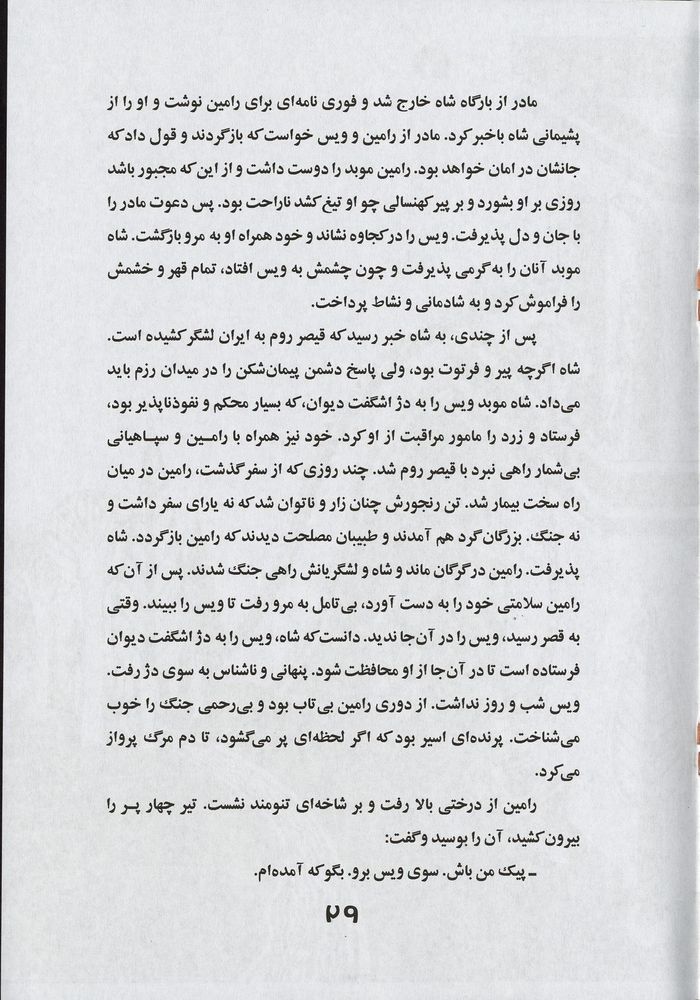 مادر از بارگاه شاه خارج شد و فوری نامه‌ای برای رامین نوشت و او را از
پشیمانی شاه باخبر کرد. مادر از رامین و ویس خواست که بازگردند و قول داد که
جانشان در امان خواهد بود. رامین موبد را دوست داشت و از این که مجبور باشد
روزی بر او بشورد و بر پیر کهنسالی چو او تیغ کشد ناراحت بود. پس دعوت مادر را
با جان و دل پذیرفت. ویس را در کجاوه نشاند و خود همراه او به مرو بازگشت. شاه
موبد آنان را به گرمی پذیرفت و چون چشمش به ویس افتاد، تمام قهر و خشمش
را فراموش کرد و به شادمانی و نشاط پرداخت.
پس از چندی، به شاه خبر رسید که قیصر روم به ایران لشگر کشیده است.
شاه اگرچه پیر و فرتوت بود، ولی پاسخ دشمن پیمان‌شکن را در میدان رزم باید
می‌داد. شاه موبد ویس را به دژ اشگفت دیوان، که بسیار محکم و نفوذناپذیر بود،
فرستاد و زرد را مامور مراقبت از او کرد. خود نیز همراه با رامین و سپاهیانی
بی‌شمار راهی نبرد با قیصر روم شد. چند روزی که از سفر گذشت، رامین در میان
راه سخت بیمار شد. تن رنجورش چنان زار و ناتوان شد که نه یارای سفر داشت و
نه جنگ. بزرگان گرد هم آمدند و طبیبان مصلحت دیدند که رامین بازگردد. شاه
پذیرفت. رامین در گرگان ماند و شاه و لشگریانش راهی جنگ شدند. پس از آن که
رامین سلامتی خود را به دست آورد، بی‌تامل به مرو رفت تا ویس را ببیند. وقتی
به قصر رسید، ویس را در آن‌جا ندید. دانست که شاه، ویس را به دژ اشگفت دیوان
فرستاده است تا در آن‌جا از او محافظت شود. پنهانی و ناشناس به سوی دژ رفت.
ویس شب و روز نداشت. از دوری رامین بی‌تاب بود و بی‌رحمی جنگ را خوب
می‌شناخت. پرنده‌ای اسیر بود که اگر لحظه‌ای پر می‌گشود، تا دم مرگ پرواز
می‌کرد.
رامین از درختی بالا رفت و بر شاخه‌ای تنومند نشست. تیر چهار پر را
بیرون کشید، آن را بوسید و گفت:
ـ پیک من باش. سوی ویس برو. بگو که آمده‌ام.
۲۹